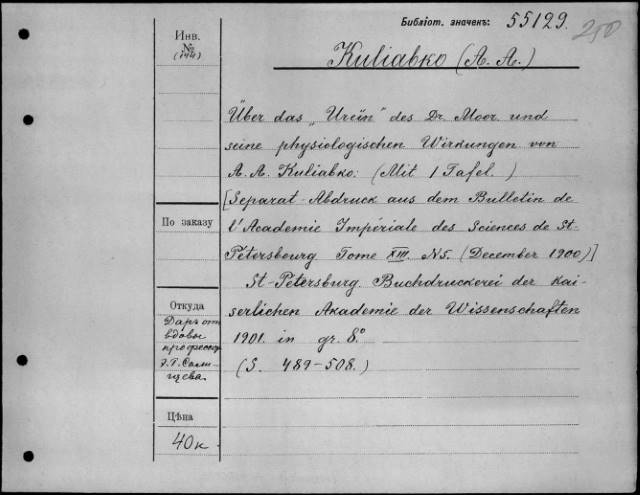 Библіот. значекъ: 55129.
250
Инв. №
(144)
Kuliabko (A. A.)
Über das „Ureïn" des Dr. Moor und
seine physiologischen Wirkungen von
A. A. Kuliabko: (Mit 1 Tafel.)
[Separat-Abdruck aus dem Bulletin de
l'Academie Impériale des Sciences de St-
Pétersbourg Tome XIII. N5. (December 1900)]
St-Petersburg. Buchdruckerei der kai-
serlichen Akademie der Wissenschaften
1901. in gr. 8°
(S. 489-508.)
По заказу
Откуда
Даръ отъ
вдовы
професор.
Э.Г. Сали-
щева.
Цѣна
40к